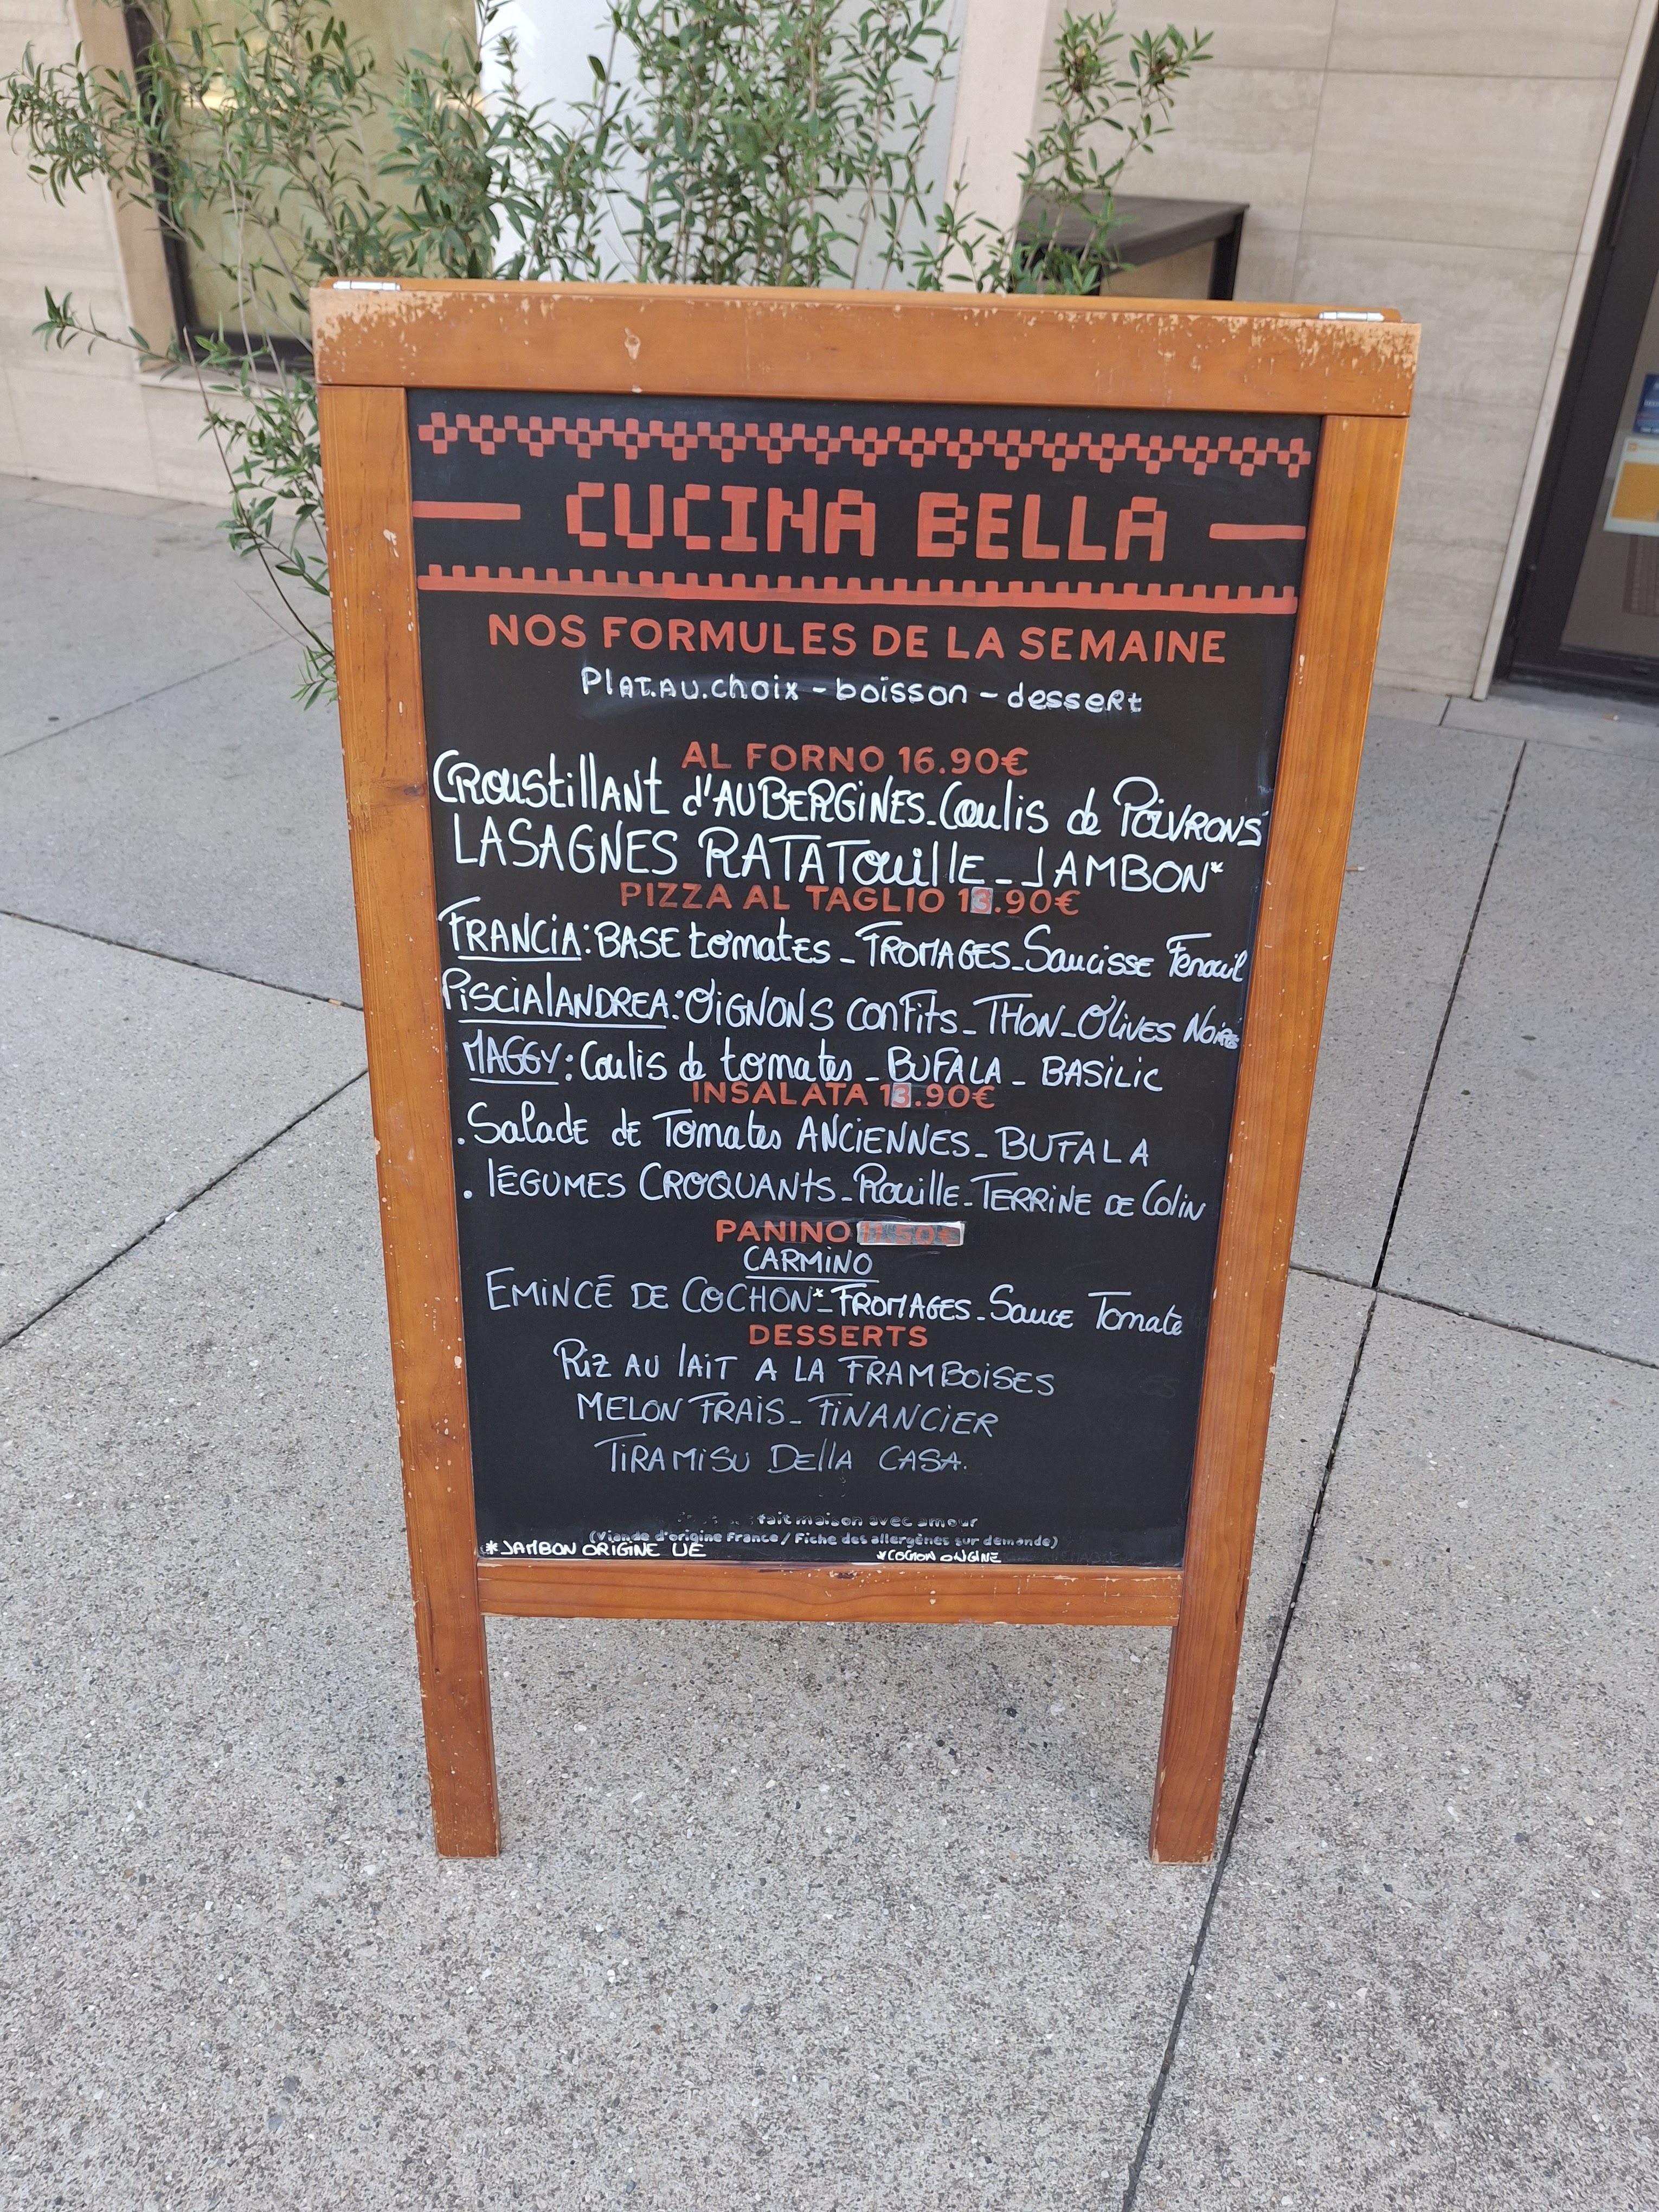 CUCINA BELLA
NOS FORMULES DE LA SEMAINE
Plat.au.choix - boisson - dessert
AL FORNO 16.90€
Croustillant d'Aubergines - Coulis de Poivrons
LASAGNES RATATouille - JAMBON*
PIZZA AL TAGLIO 13.90€
FRANCIA: BASE tomates - FROMAGES - Saucisse Fenouil
PISCIALANDREA: OIGNONS confits - THON - Olives Noires
MAGGY: Coulis de tomates - BUFALA - BASILIC
INSALATA 13.90€
. Salade de Tomates ANCIENNES - BUFALA
. LÉGUMES CROQUANTS - Rouille - TERRINE DE Colin
PANINO 11.50€
CARMINO
EMINCÉ DE COCHON* - FROMAGES - Sauce Tomate
DESSERTS
RIZ AU LAIT A LA FRAMBOISES
MELON FRAIS - FINANCIER
TIRAMISU DELLA CASA.
fait maison avec amour
(Viande d'origine France / Fiche des allergènes sur demande)
*JAMBON ORIGINE UE